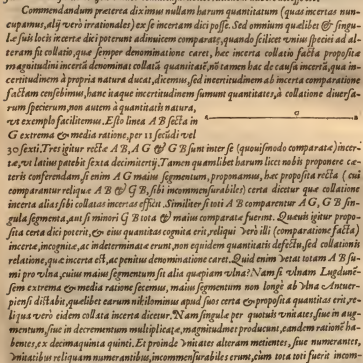 Commendandum præterea diximus nullam harum quantitatum (quas incertas nun-
cupamus, alij verò irrationales) ex se incertam dici posse. Sed omnium quælibet & singu-
læ suis locis incertæ dici poterunt adinuicem comparatæ, quando scilicet vnius speciei ad al-
teram fit collatio, quæ semper denominatione caret, hæc incerta collatio facta proposita
magnitudini incertã denominat collatã quantitatẽ, nõ tamen hac de causa incertã, qua in-
certitudinem à propria natura ducat, dicemus, sed incertitudinem ab incerta comparatione
factam censebimus, hanc itaque incertitudinem sumunt quantitates, à collatione diuersa-
rum specierum, non autem à quantitatis natura,
vt exemplo facilitemus. Esto linea A B secta in
G extrema & media ratione, per 11 secũdi vel
30 sexti. Tres igitur rectæ A B, A G & G B sunt inter se (quouismodo comparatæ) incer-
tæ, vt latius patebit sexta decimitertij. Tamen quamlibet harum licet nobis proponere cæ-
teris conferendam, si enim A G maius segmentum, proponamus, hæc proposita recta (cui
comparantur reliquæ A B & G B, sibi incommensurabiles) certa dicetur quæ collatione
incerta alias sibi collatas incertas efficit. Similiter si toti A B comparentur A G, G B sin-
gula segmenta, aut si minori G B tota & maius comparatæ fuerint. Quæuis igitur propo-
sita certa dici poterit, & eius quantitas cognita erit, reliqui verò illi (comparatione facta)
incertæ, incognitæ, ac indeterminatæ erunt, non equidem quantitatis defectu, sed collationis
relatione, quæ incerta est, ac penitus denominatione caret. Quid enim vetat totam A B su-
mi pro vlna, cuius maius segmentum sit alia quæpiam vlna? Nam si vlnam Lugdunẽ-
sem extrema & media ratione secemus, maius segmentum non longè ab vlna Antuer-
piensi distabit, quælibet earum nihilominus apud suos certa & proposita quantitas erit, re-
liqua verò eidem collata incerta dicetur. Nam singulæ per quotuis vnitates, siue in aug-
mentum, siue in decrementum multiplicatæ, magnitudines producunt, eandem rationẽ ha-
bentes, ex decimaquinta quinti. Et proinde vnitates alteram metientes, siue numerantes,
vnitatibus reliquam numerantibus, incommensurabiles erunt, cùm tota toti fuerit incom-